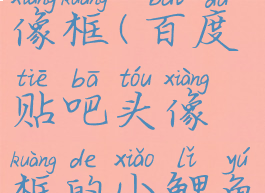 xiàng kuàng bǎi dù
像框(百度
tiē bā tóu xiàng
贴吧头像
kuàng de xiǎo lǐ yú
框的小鲤鱼